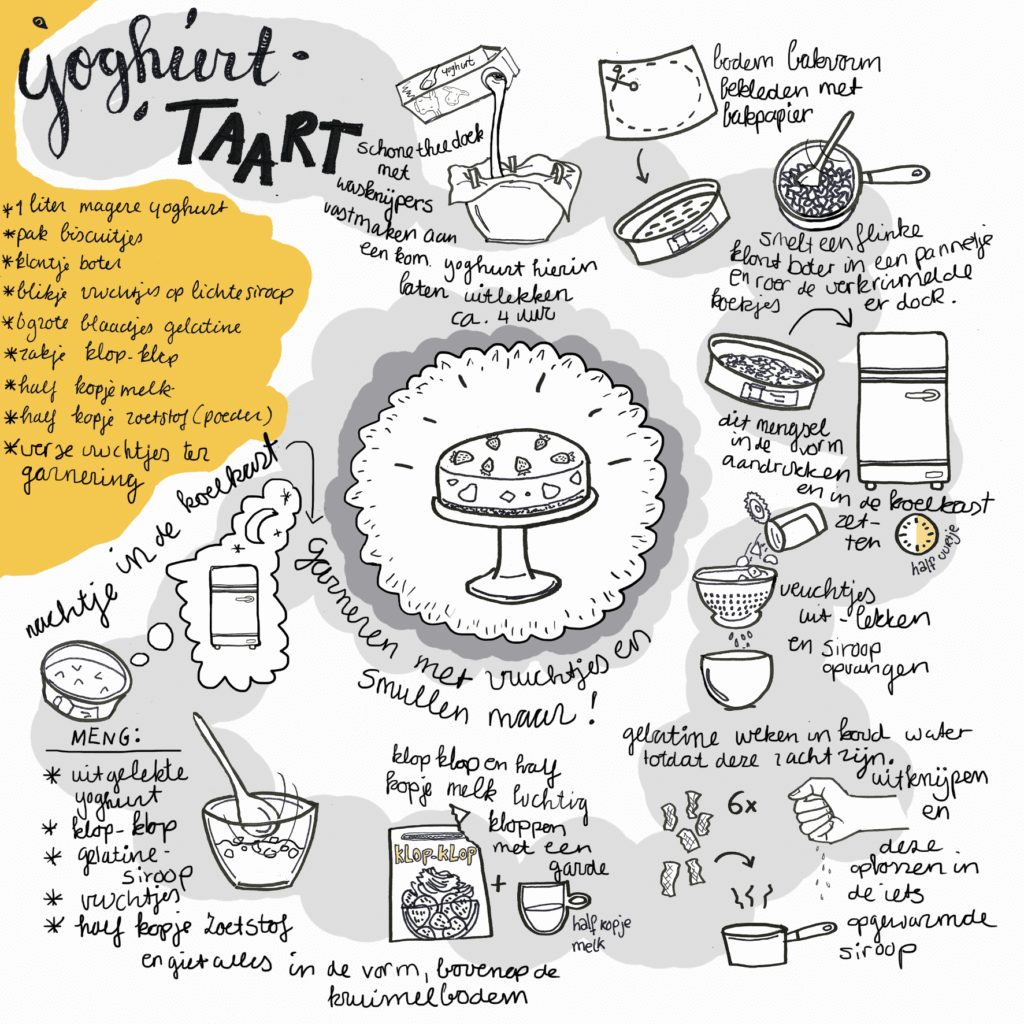 yoghurt-
TAART
*1 liter magere yoghurt
*pak biscuitjes
*klontje boter
*blikje vruchtjes op lichte siroop
*6 grote blaadjes gelatine
*zakje klop-klop
*half kopje melk
*half kopje zoetstof (poeder)
*verse vruchtjes ter
garnering
yoghurt
schone theedoek
met
wasknijpers
vastmaken aan
een kom. yoghurt hierin
laten uitlekken
ca. 4 uur
bodem bakvorm
bekleden met
bakpapier
smelt een flinke
klont boter in een pannetje
en roer de verkruimelde
koekjes er door.
dit mengsel
in de vorm
aandrukken
en in de koelkast
zet-
ten
half uurtje
vruchtjes
uit-lekken
en siroop
opvangen
gelatine weken in koud water
totdat deze zacht zijn.
6x
uitknijpen
en
deze
oplossen in
de iets
opgewarmde
siroop
klop klop en half
kopje melk luchtig
kloppen
met een
garde
KLOP-KLOP
+
half kopje
melk
MENG:
* uitgelekte
yoghurt
* klop-klop
* gelatine-
siroop
* vruchtjes
* half kopje zoetstof
en giet alles in de vorm, bovenop de
kruimelbodem
nachtje in de koelkast
garneren met vruchtjes en
smullen maar!